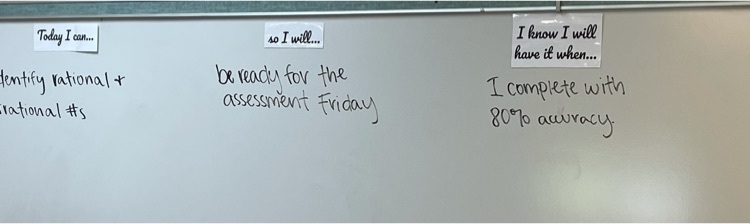 Today I can...
dentify rational +
rational #s
so I will...
be ready for the
assessment Friday
I know I will
have it when...
I complete with
80% accuracy.